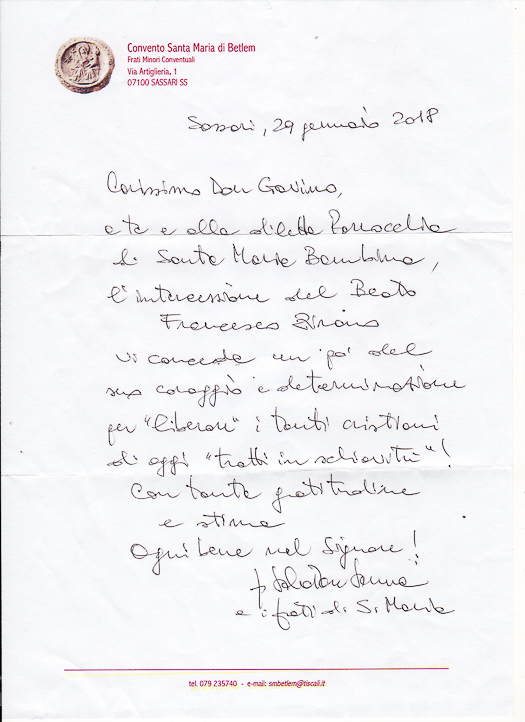 Convento Santa Maria di Betlem
Frati Minori Conventuali
Via Artiglieria, 1
07100 SASSARI SS
Sassari, 29 gennaio 2018
Carissimo Don Gavino,
a te e alla diletta Parrocchia
di Santa Maria Bambina,
l'intercessione del Beato
Francesco Zirano
vi conceda un po' del
suo coraggio e determinazione
per "liberare" i tanti cristiani
di oggi "tratti in schiavitù"!
Con tanta gratitudine
e stima
Ogni bene nel Signore!
p. Salvatore Sanna
e i frati di S. Maria
tel. 079 235740 - e-mail: smbetlem@tiscali.it